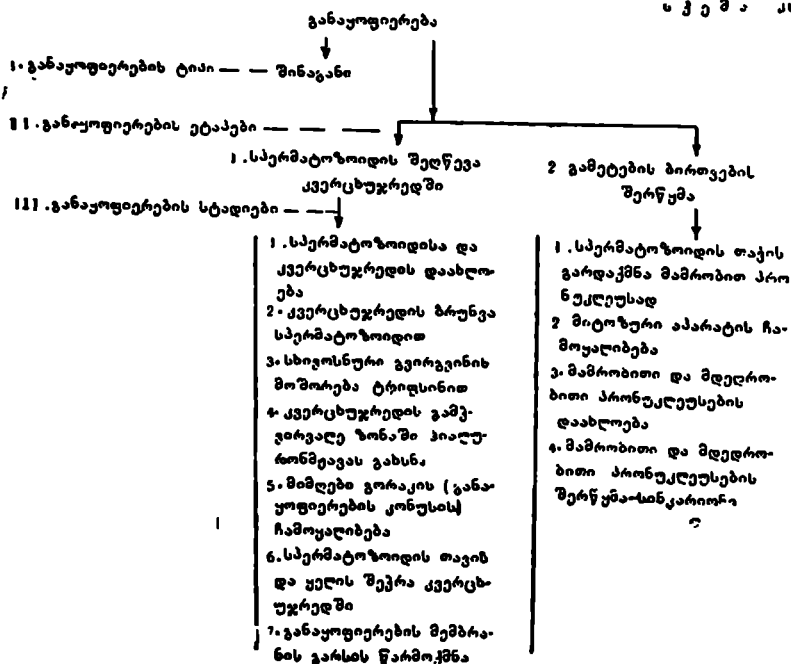 ს ქ ე მ ა
განაყოფიერება
I. განაყოფიერების ტიპი — — შინაგანი
II. განაყოფიერების ეტაპები — — —
1. სპერმატოზოიდის შეღწევა
კვერცხუჯრედში
2 გამეტების ბირთვების
შერწყმა
III. განაყოფიერების სტადიები — —
1. სპერმატოზოიდისა და
კვერცხუჯრედის დაახლო-
ება
2. კვერცხუჯრედის ბრუნვა
სპერმატოზოიდით
3. სხივოსნური გვირგვინის
მოშორება ტრიფსინით
4. კვერცხუჯრედის გამჭ-
ვირვალე ზონაში ჰიალუ-
რონმჟავას გახსნა
5. მიმღები გორაკის (განა-
ყოფიერების კონუსის)
ჩამოყალიბება
6. სპერმატოზოიდის თავის
და ყელის შეჭრა კვერცხ-
უჯრედში
7. განაყოფიერების მემბრა-
ნის გარსის წარმოქმნა
1. სპერმატოზოიდის თავის
გარდაქმნა მამრობით პრო
ნუკლეუსად
2 მიტოზური აპარატის ჩა-
მოყალიბება
3. მამრობითი და მდედრო-
ბითი პრონუკლეუსების
დაახლოება
4. მამრობითი და მდედრო-
ბითი პრონუკლეუსების
შერწყმა-სინკარიონი